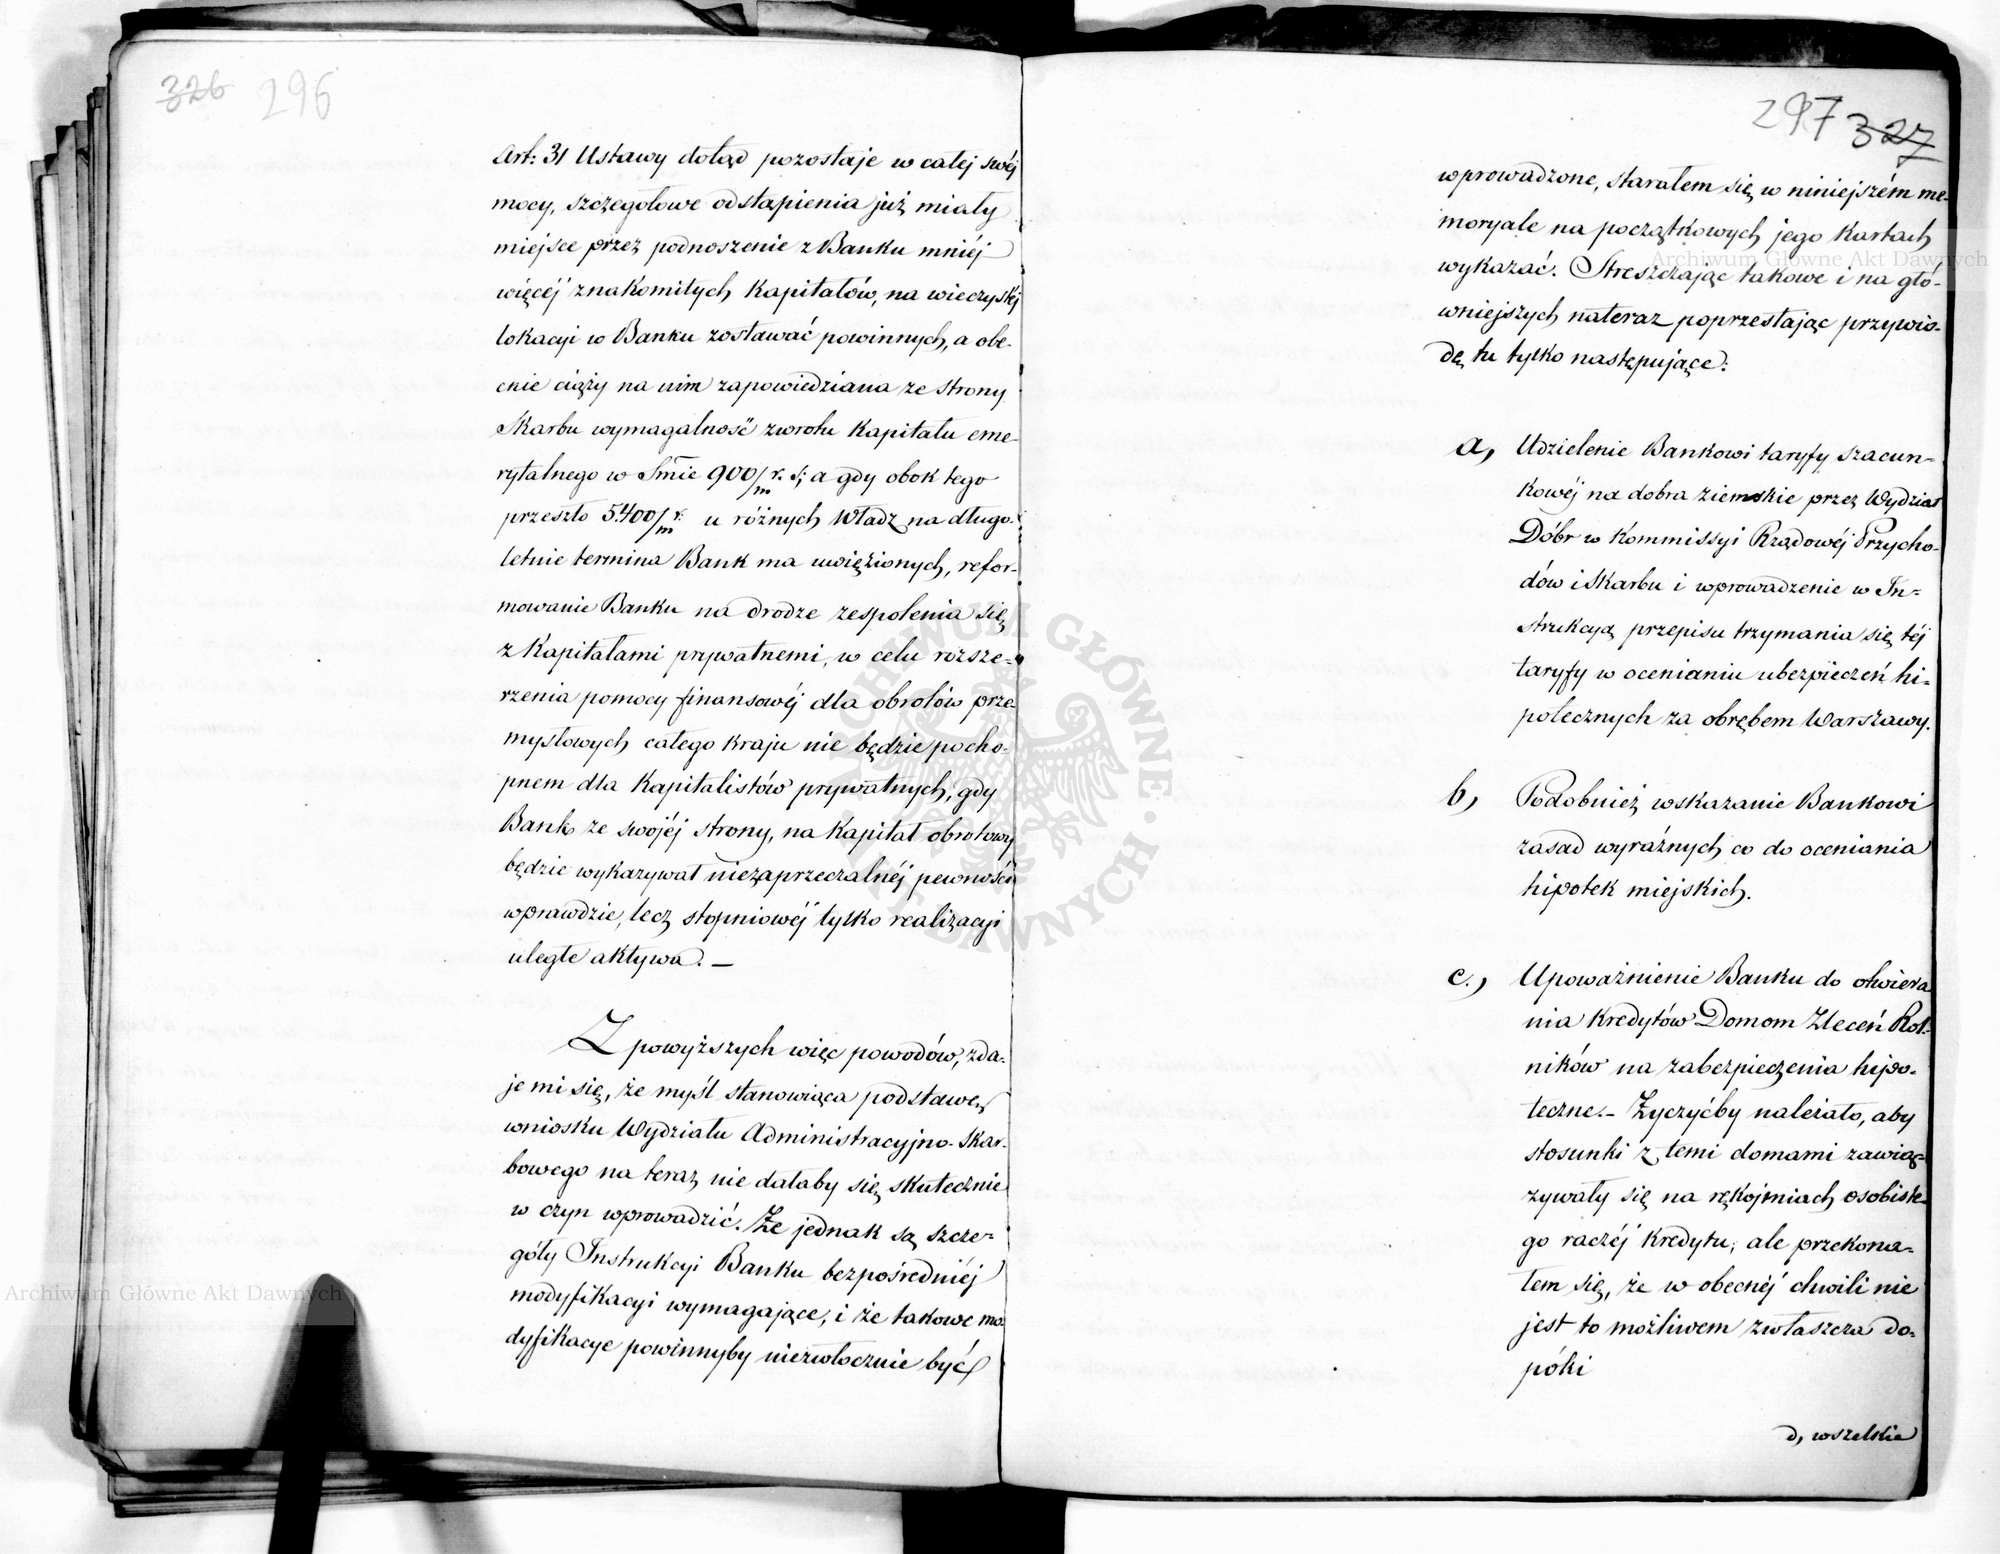 326 296
Art: 31 Ustawy dotąd pozostaje w całej swéj
mocy, szczegołowe odstąpienia już miały
miejsce przez podnoszenie z Banku mniéj
więcéj znakomitych Kapitałów, na wieczystéj
lokacyi w Banku zostawać powinnych, a obe-
cnie ciąży na nim zapowiedziana ze strony
Skarbu wymagalność zwrotu Kapitału eme-
rytalnego w Smie 900/m r. s; a gdy obok tego
przeszło 5.400/m r. u różnych Władz na długo-
letnie termina Bank ma uwięzionych, refor-
mowanie Banku na drodze zespolenia się
z Kapitałami prywatnemi, w celu rozsze-
rzenia pomocy finansowéj dla obrotów prze-
mysłowych całego Kraju nie będzie pocho-
pnem dla Kapitalistów prywatnych, gdy
Bank ze swojéj strony, na Kapitał obrotowy
będzie wykazywał niezaprzeczalnéj pewności
wprawdzie, lecz stopniowéj tylko realizacyi
uległe aktywa. —
Z powyższych więc powodów, zda-
je mi się, że myśl stanowiąca podstawę
wniosku Wydziału Administracyjno-Skar-
bowego na teraz nie dałaby się skutecznie
w czyn wprowadzić. Że jednak są szcze-
góły Instrukcyi Banku bezpośredniéj
modyfikacyi wymagające, i że takowe mo-
dyfikacye powinnyby niezwłocznie być
297 327
wprowadzone, starałem się w niniejszém me-
moryale na początkowych jego Kartach
wykazać. Streszczając takowe i na głó-
wniejszych nateraz poprzestając przywio-
dę tu tylko następujące:
a, Udzielenie Bankowi taryfy szacun-
kowéj na dobra ziemskie przez Wydział
Dóbr w Kommissyi Rządowéj Przycho-
dów i Skarbu i wprowadzenie w In-
strukcyą przepisu trzymania się téj
taryfy w ocenianiu ubezpieczeń hi-
potecznych za obrębem Warszawy.
b, Podobnież wskazanie Bankowi
zasad wyraźnych co do oceniania
hipotek miejskich.
c., Upoważnienie Banku do otwiera
nia Kredytów Domom Zleceń Rol-
ników na zabezpieczenia hipo-
teczne. — Życzyćby należało, aby
stosunki z temi domami zawiąz-
zywały się na rękojmiach osobiste-
go raczéj Kredytu, ale przekona-
łem się, że w obecnéj chwili nie
jest to możliwem zwłaszcza do-
póki
d, wszelkie
Archiwum Główne Akt Dawnych
Archiwum Główne Akt Dawnych
ARCHIWUM GŁÓWNE AKT DAWNYCH